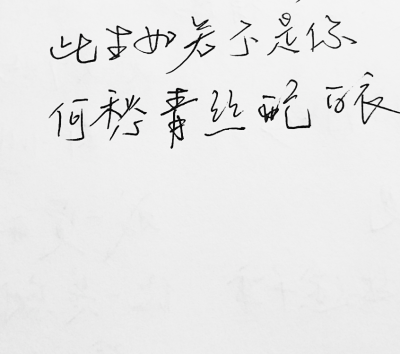 此生如若不是你
何愁青丝配白衣